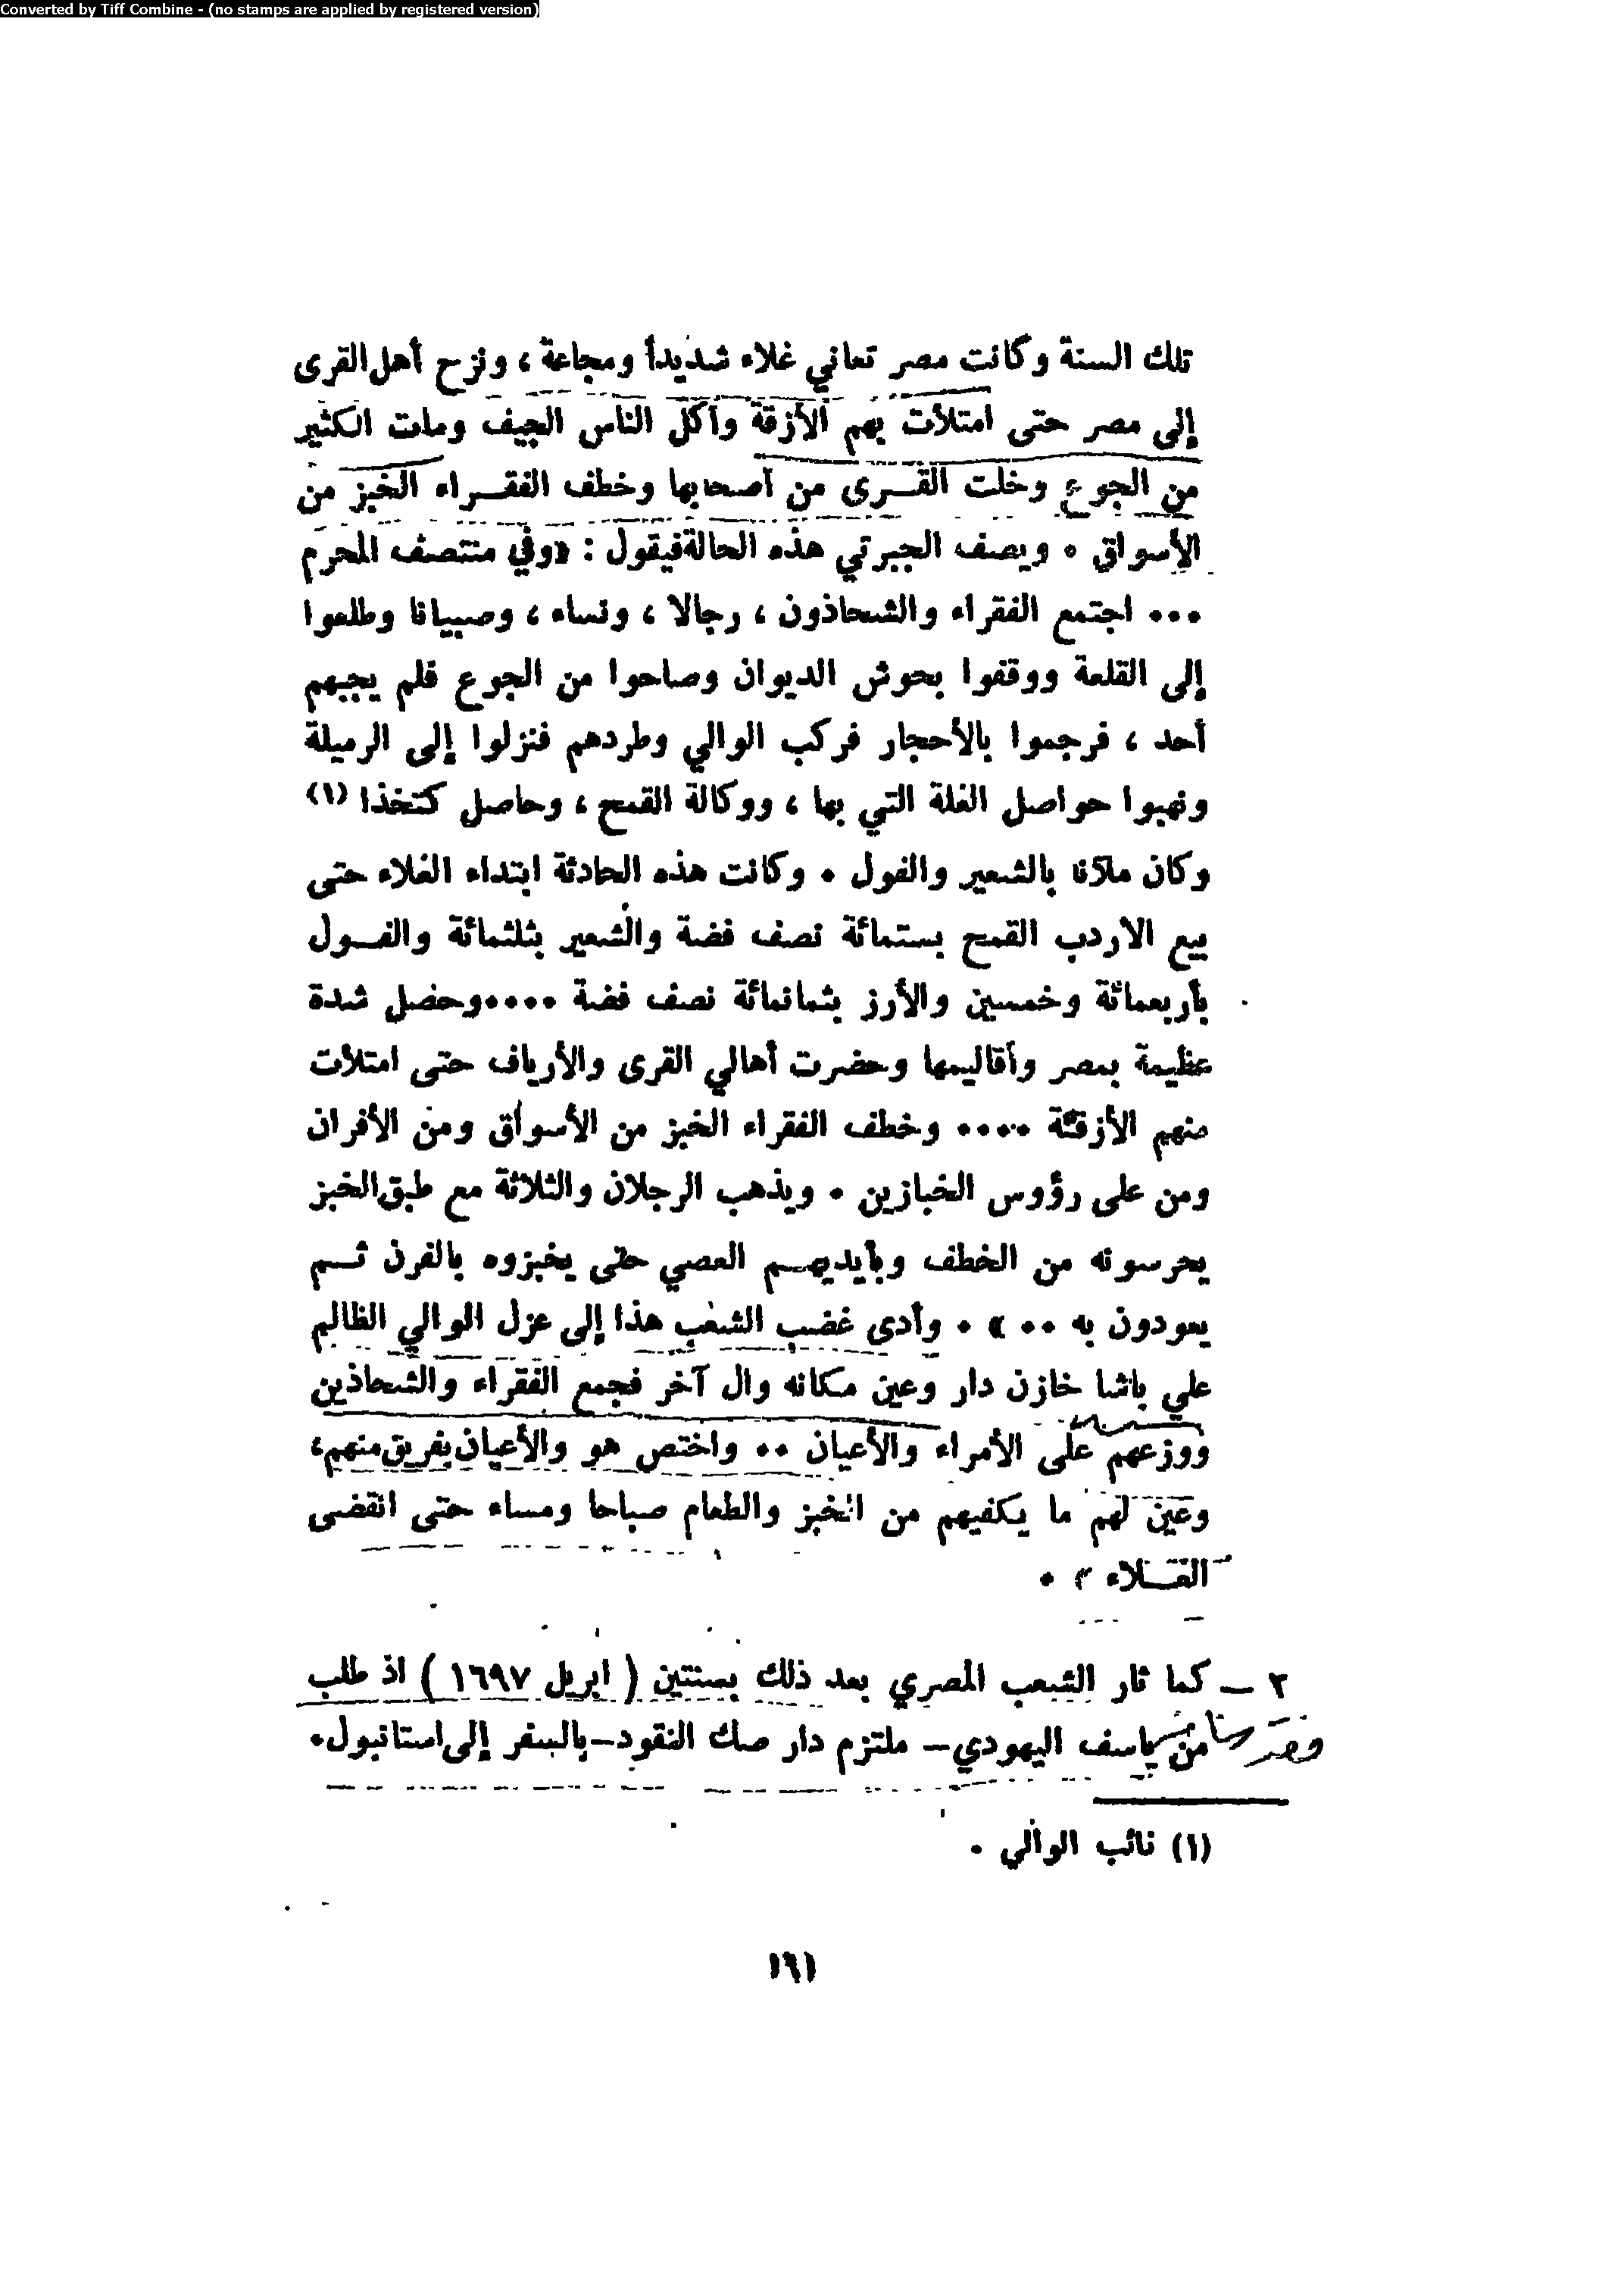 Converted by Tiff Combine - (no stamps are applied by registered version)
تلك السنة وكانت مصر تعاني غلاء شديداً ومجاعة ، ونزح أهل القرى
إلى مصر حتى امتلأت بهم الأزقة وأكل الناس الجيف ومات الكثير
من الجوع وخلت القـرى من أصحابها وخطف الفقـراء الخبز من
الأسواق . ويصف الجبرتي هذه الحالة فيقول : «وفي منتصف المحرم
... اجتمع الفقراء والشحاذون ، رجالا ، ونساء ، وصبيانا وطلعوا
إلى القلعة ووقفوا بحوش الديوان وصاحوا من الجوع فلم يجبهم
أحد ، فرجموا بالأحجار فركب الوالي وطردهم فنزلوا إلى الرميلة
ونهبوا حواصل الغلة التي بها ، ووكالة القمح ، وحاصل كتخذا (١)
وكان ملآنا بالشعير والفول . وكانت هذه الحادثة ابتداء الغلاء حتى
بيع الاردب القمح بستمائة نصف فضة والشعير بثلثمائة والفـول
بأربعمائة وخمسين والأرز بثمانمائة نصف فضة ....وحصل شدة
عظيمة بمصر وأقاليمها وحضرت أهالي القرى والأرياف حتى امتلأت
منهم الأزقة .... وخطف الفقراء الخبز من الأسواق ومن الأفران
ومن على رؤوس الخبازين . ويذهب الرجلان والثلاثة مع طبق الخبز
يحرسونه من الخطف وبأيديهـم العصي حتى يخبزوه بالفرن ثـم
يعودون به .. » . وأدى غضب الشعب هذا إلى عزل الوالي الظالم
علي باشا خازن دار وعين مكانه وال آخر فجمع الفقراء والشحاذين
ووزعهم على الأمراء والأعيان .. واختص هو والأعيان بفريق منهم،
وعين لهم ما يكفيهم من الخبز والطعام صباحا ومساء حتى انقضى
الغـلاء » .
٢ – كما ثار الشعب المصري بعد ذلك بسنتين ( ابريل ١٦٩٧ ) اذ طلب
من ياسف اليهودي – ملتزم دار صك النقود – بالسفر إلى استانبول.
(١) نائب الوالي .
١٦١